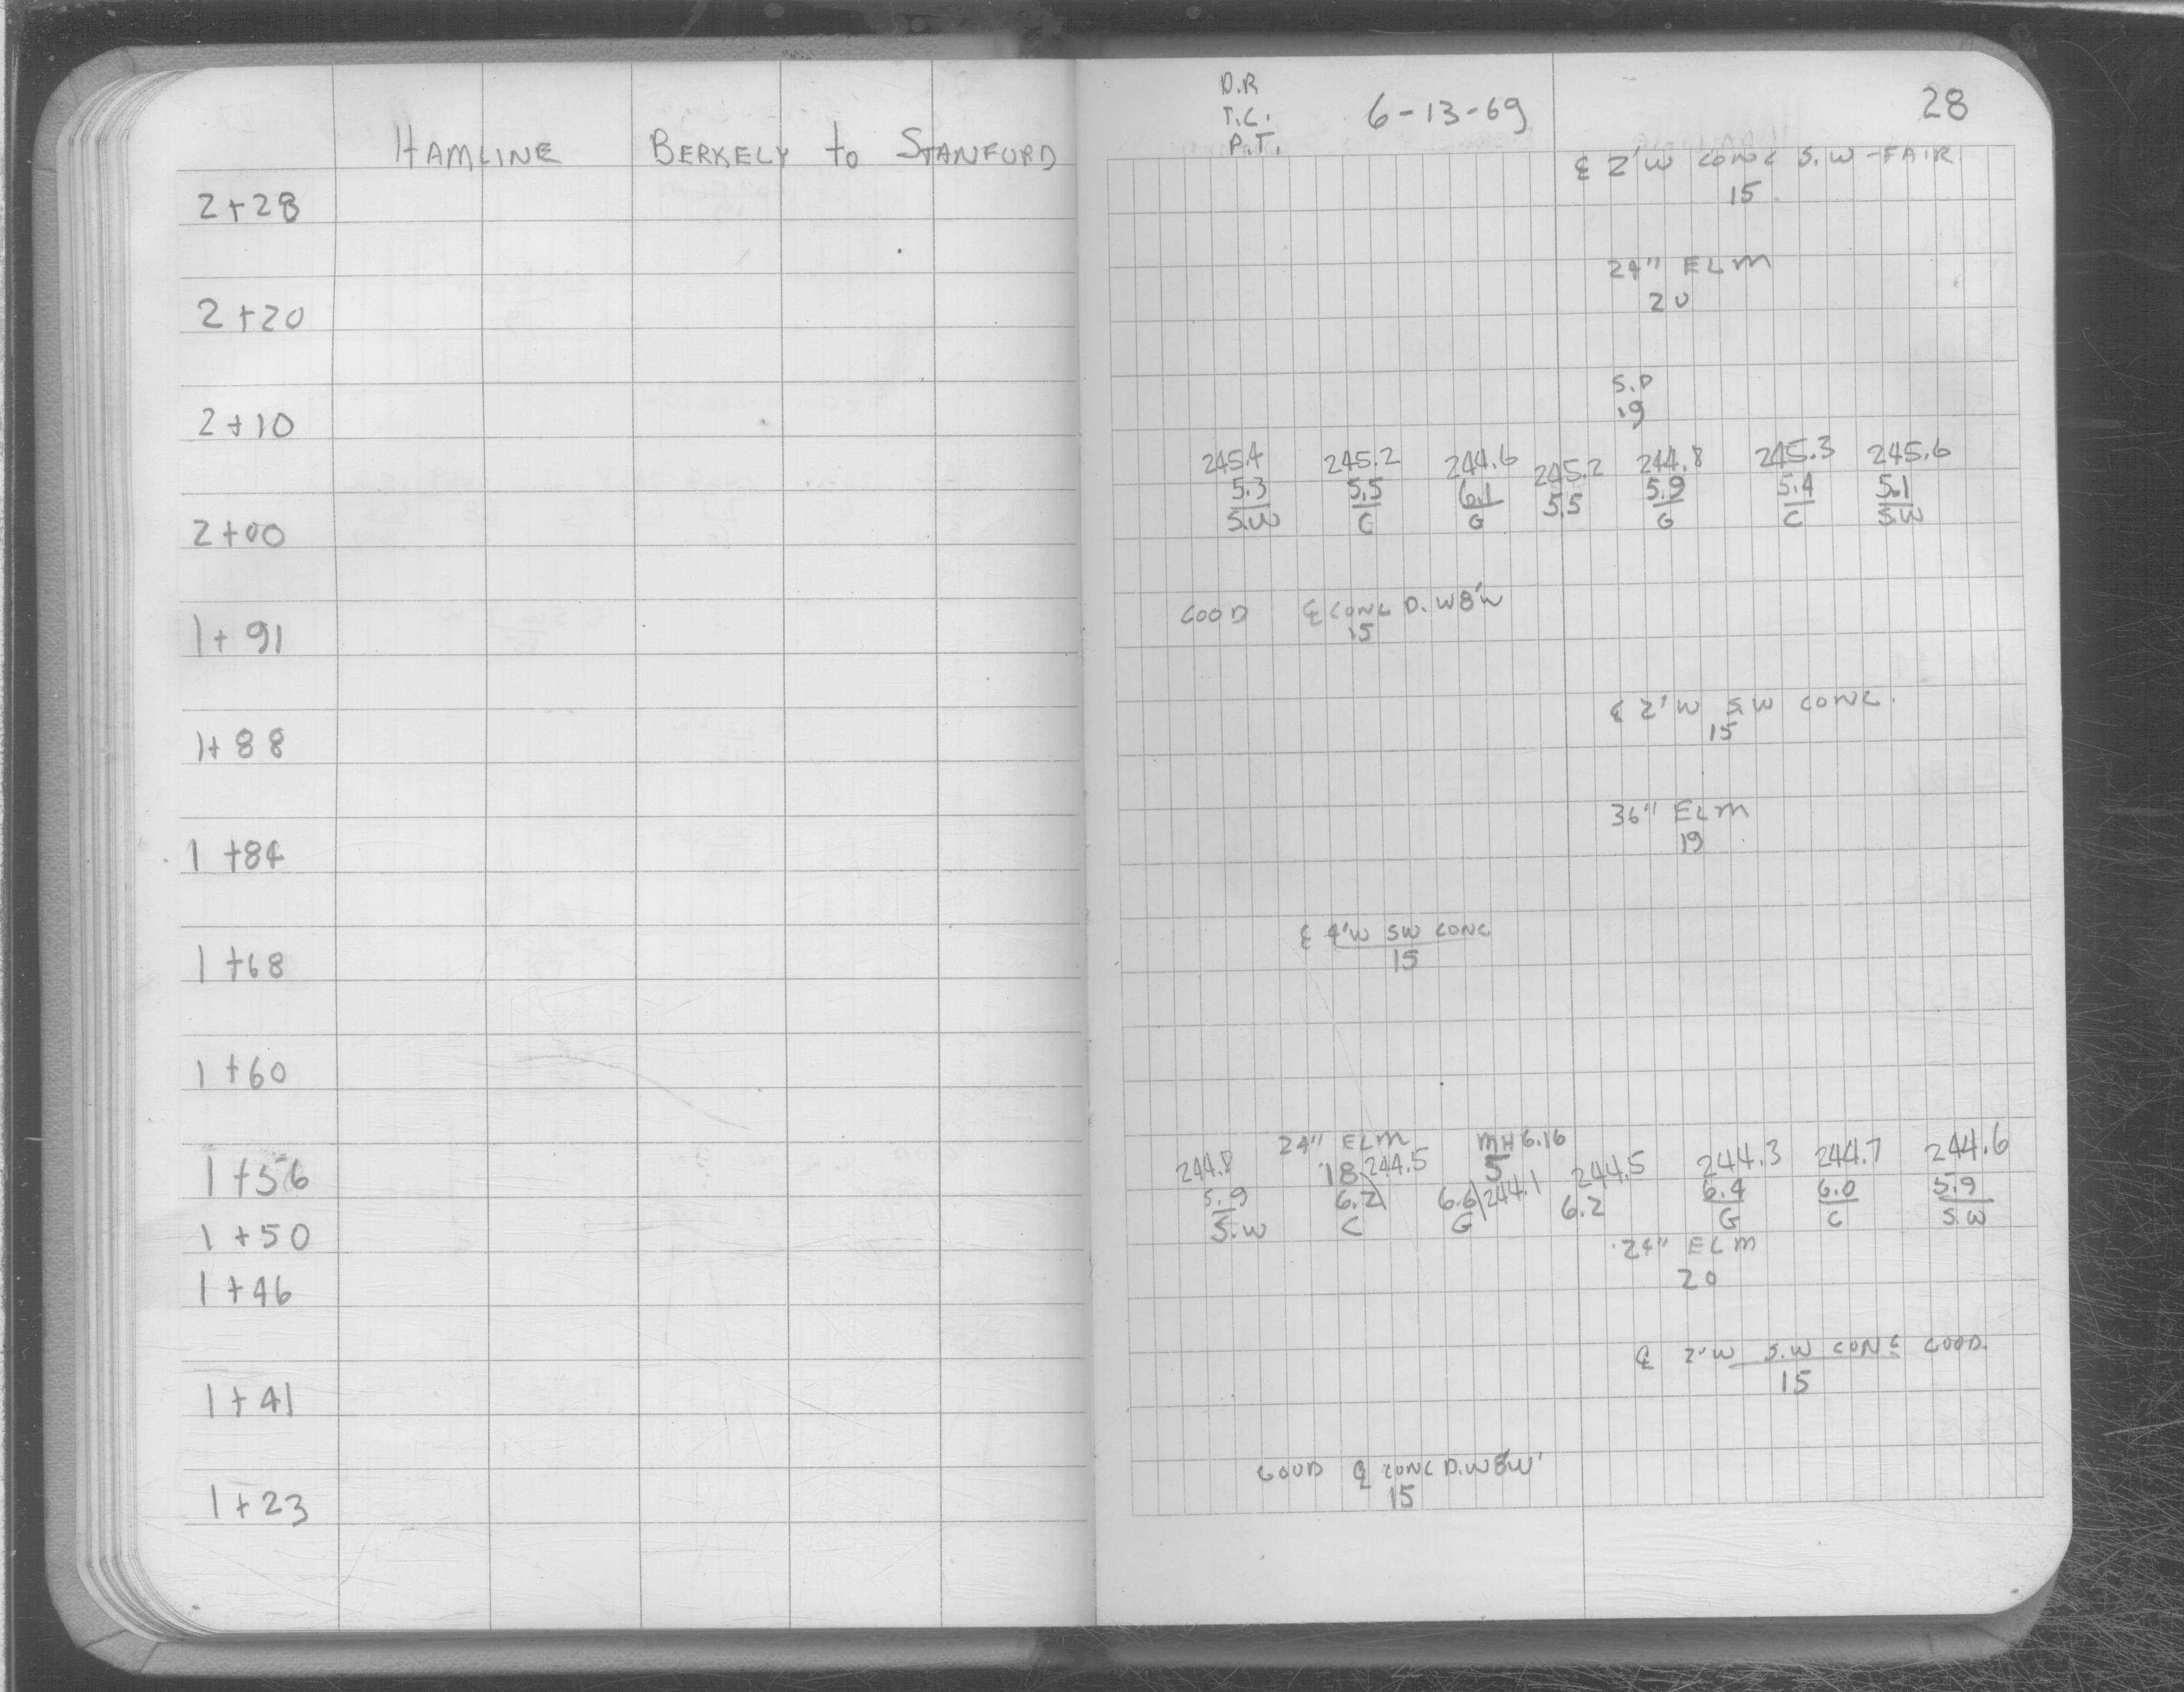 HAMLINE BERKELY to STANFORD
2+28
2+20
2+10
2+00
1+91
1+88
1+84
1+68
1+60
1+56
1+50
1+46
1+41
1+23
D.R
T.C.
P.T.
6-13-69
28
℄ 2'W CONC S.W-FAIR
15
24" ELM
20
S.P
19
245.4 245.2 244.6 245.2 244.8 245.3 245.6
5.3 5.5 6.1 5.5 5.9 5.4 5.1
S.W C G G C S.W
GOOD ℄ CONC D.W 8'W
15
℄ 2'W S.W CONC.
15
36" ELM
19
℄ 4'W SW CONC
15
24" ELM MH 6.16
244.8 18 244.5 5 244.5 244.3 244.7 244.6
5.9 6.2 6.6 244.1 6.2 6.4 6.0 5.9
S.W C G G C S.W
24" ELM
20
℄ 2'W S.W CONC GOOD.
15
GOOD ℄ CONC D.W 8'W
15